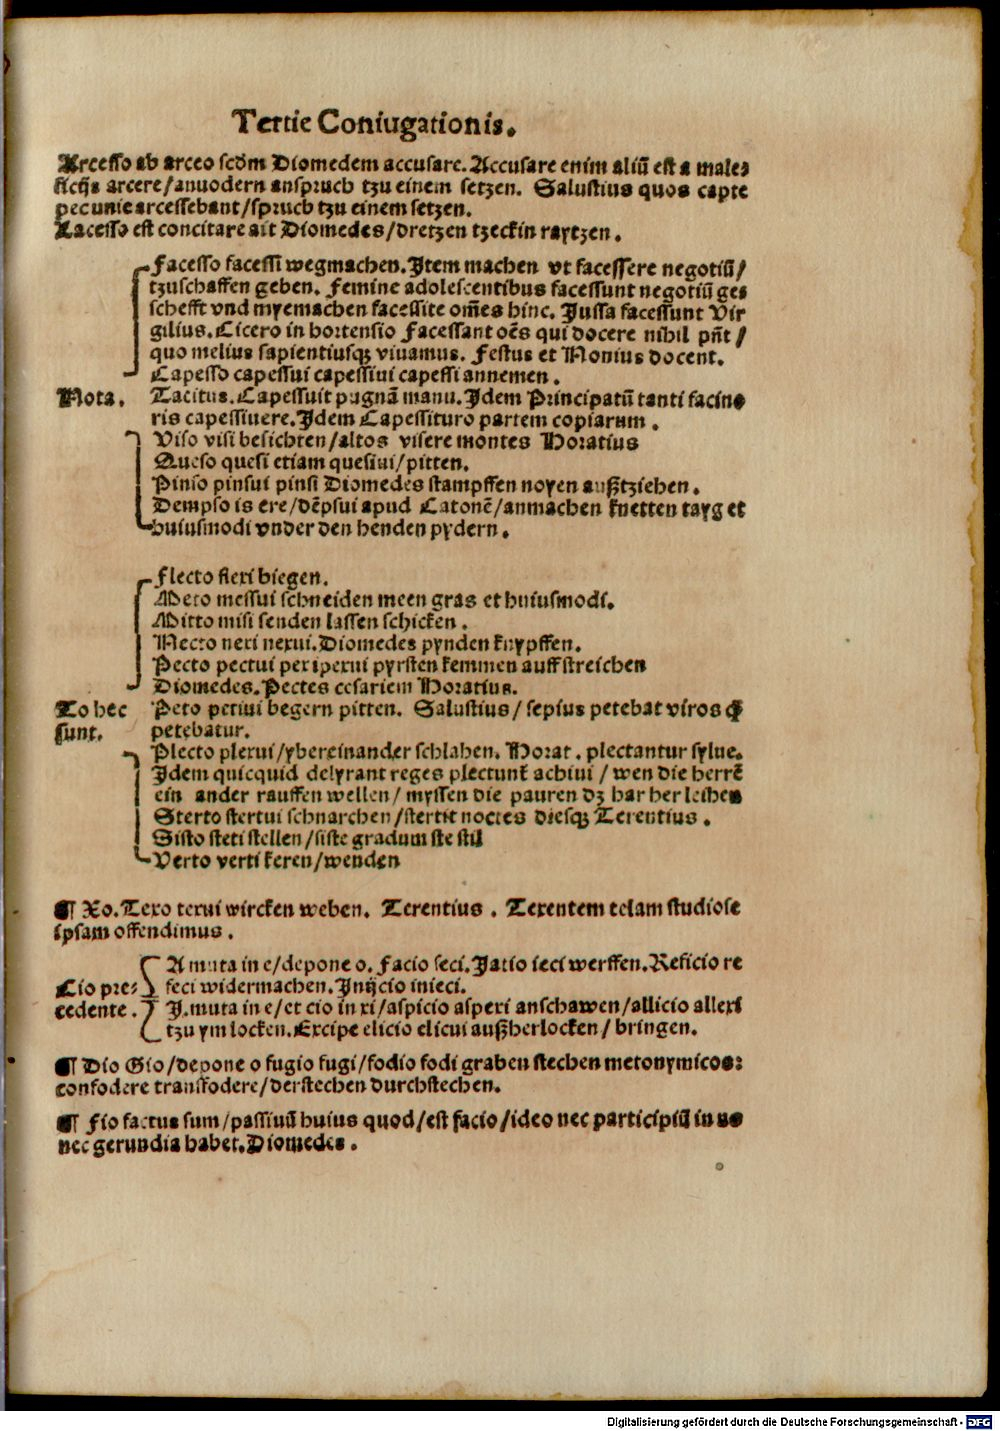 Tertie Coniugationis.
Arcesso ab arceo scd̄m Diomedem accusare. Accusare enim aliū est a male⸗
ficijs arcere/anuodern anspruch tzu einem setzen. Salustius quos capte
pecunie arcessebant/spruch tzu einem setzen.
Lacesso est concitare ait Diomedes/dretzen tzeckin raytzen.
Facesso facessi wegmachen. Item machen vt facessere negotiū/
tzuschaffen geben. Femine adolescentibus facessunt negotiū ge⸗
schefft vnd myemachen facessite om̄es hinc. Jussa facessunt Vir
gilius. Cicero in hortensio Facessant oēs qui docere nihil pn̄t/
quo melius sapientiusqꝫ viuamus. Festus et Nonius docent.
Capesso capessui capessiui capessi annemen.
Nota. Tacitus. Capessuit pugnā manu. Idem Principatū tanti facino
ris capessiuere. Idem Capessituro partem copiarum.
Viso visi besichten/altos visere montes Horatius
Queso quesi etiam quesiui/pitten.
Pinso pinsui pinsi Diomedes stampffen noyen außtziehen.
Dempso is ere/dēpsui apud Catonē/anmachen knetten tayg et
huiusmodi vnder den henden pydern.
Flecto flexi biegen.
Meto messui schneiden meen gras et huiusmodi.
Mitto misi senden lassen schicken.
Necto nexi nexui. Diomedes pynden knypffen.
Pecto pectui pexi pexui pyrsten kemmen auffstreichen
Diomedes. Pectes cesariem Horatius.
To hec Peto petiui begern pitten. Salustius/sepius petebat viros ꝙ̄
sunt. petebatur.
Plecto plexui/ybereinander schlahen. Horat. plectantur sylue.
Idem quicquid delyrant reges plectunt̄ achiui/wen die herrē
ein ander rauffen wellen/myssen die pauren dꝫ har her leihen
Sterto stertui schnarchen/stertit noctes diesqꝫ Terentius.
Sisto steti stellen/siste gradum ste stil
Verto verti keren/wenden
¶ Xo. Texo texui wircken weben. Terentius. Texentem telam studiose
ipsam offendimus.
A muta in e/depone o. Facio feci. Jatio ieci werffen. Reficio re
Cio pre⸗ feci widermachen. Inijcio inieci.
cedente. I. muta in e/et cio in xi/aspicio asperi anschawen/allicio allexi
tzu ym locken. Excipe elicio elicui außherlocken/bringen.
¶ Dio Gio/depone o fugio fugi/fodio fodi graben stechen metonymicos:
confodere transfodere/derstechen durchstechen.
¶ Fio factus sum/passiuū huius quod/est facio/ideo nec participiū in us
nec gerundia habet. Diomedes.
Digitalisierung gefördert durch die Deutsche Forschungsgemeinschaft - DFG